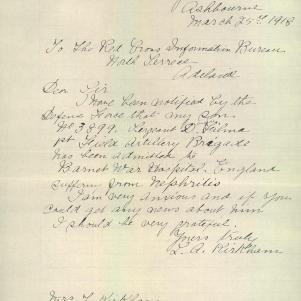 Ashbourne
March 25th 1918
To The Red Cross Information Bureau
North Terrace
Adelaide
Dear Sir
I have been notified by the
Defence that my son
No 3899. D.
1st Field Artillery Brigade
has been admitted to
Barnet War Hospital. England
suffering from Nephritis
I am very anxious and if you
could get any news about him
I should be very grateful.
Yours truly
L. A. Kirkham
Mrs L Kirkham